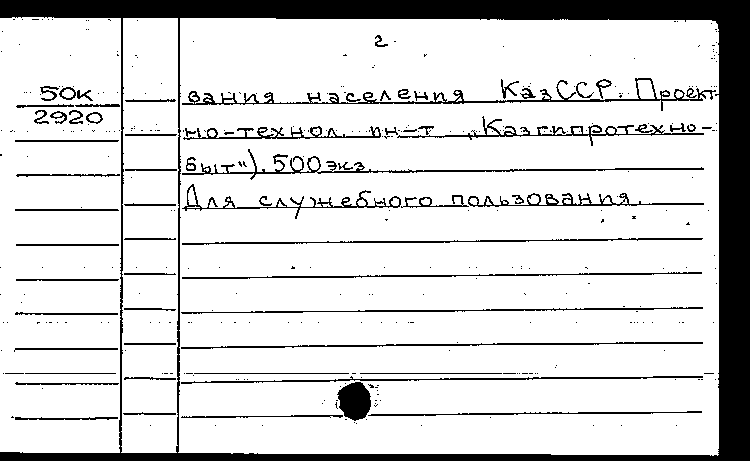 2
50К
2920
вания населения КазССР. Проект-
но-технол. ин-т „Казгипротехно-
быт"). 500 экз.
Для служебного пользования.